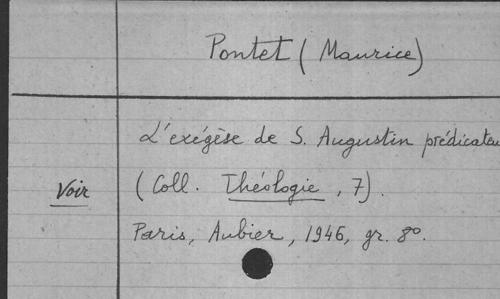 Pontet (Maurice)
L'exégèse de S. Augustin prédicateu
Voir (Coll. Théologie, 7).
Paris, Aubier, 1946, gr. 8°.